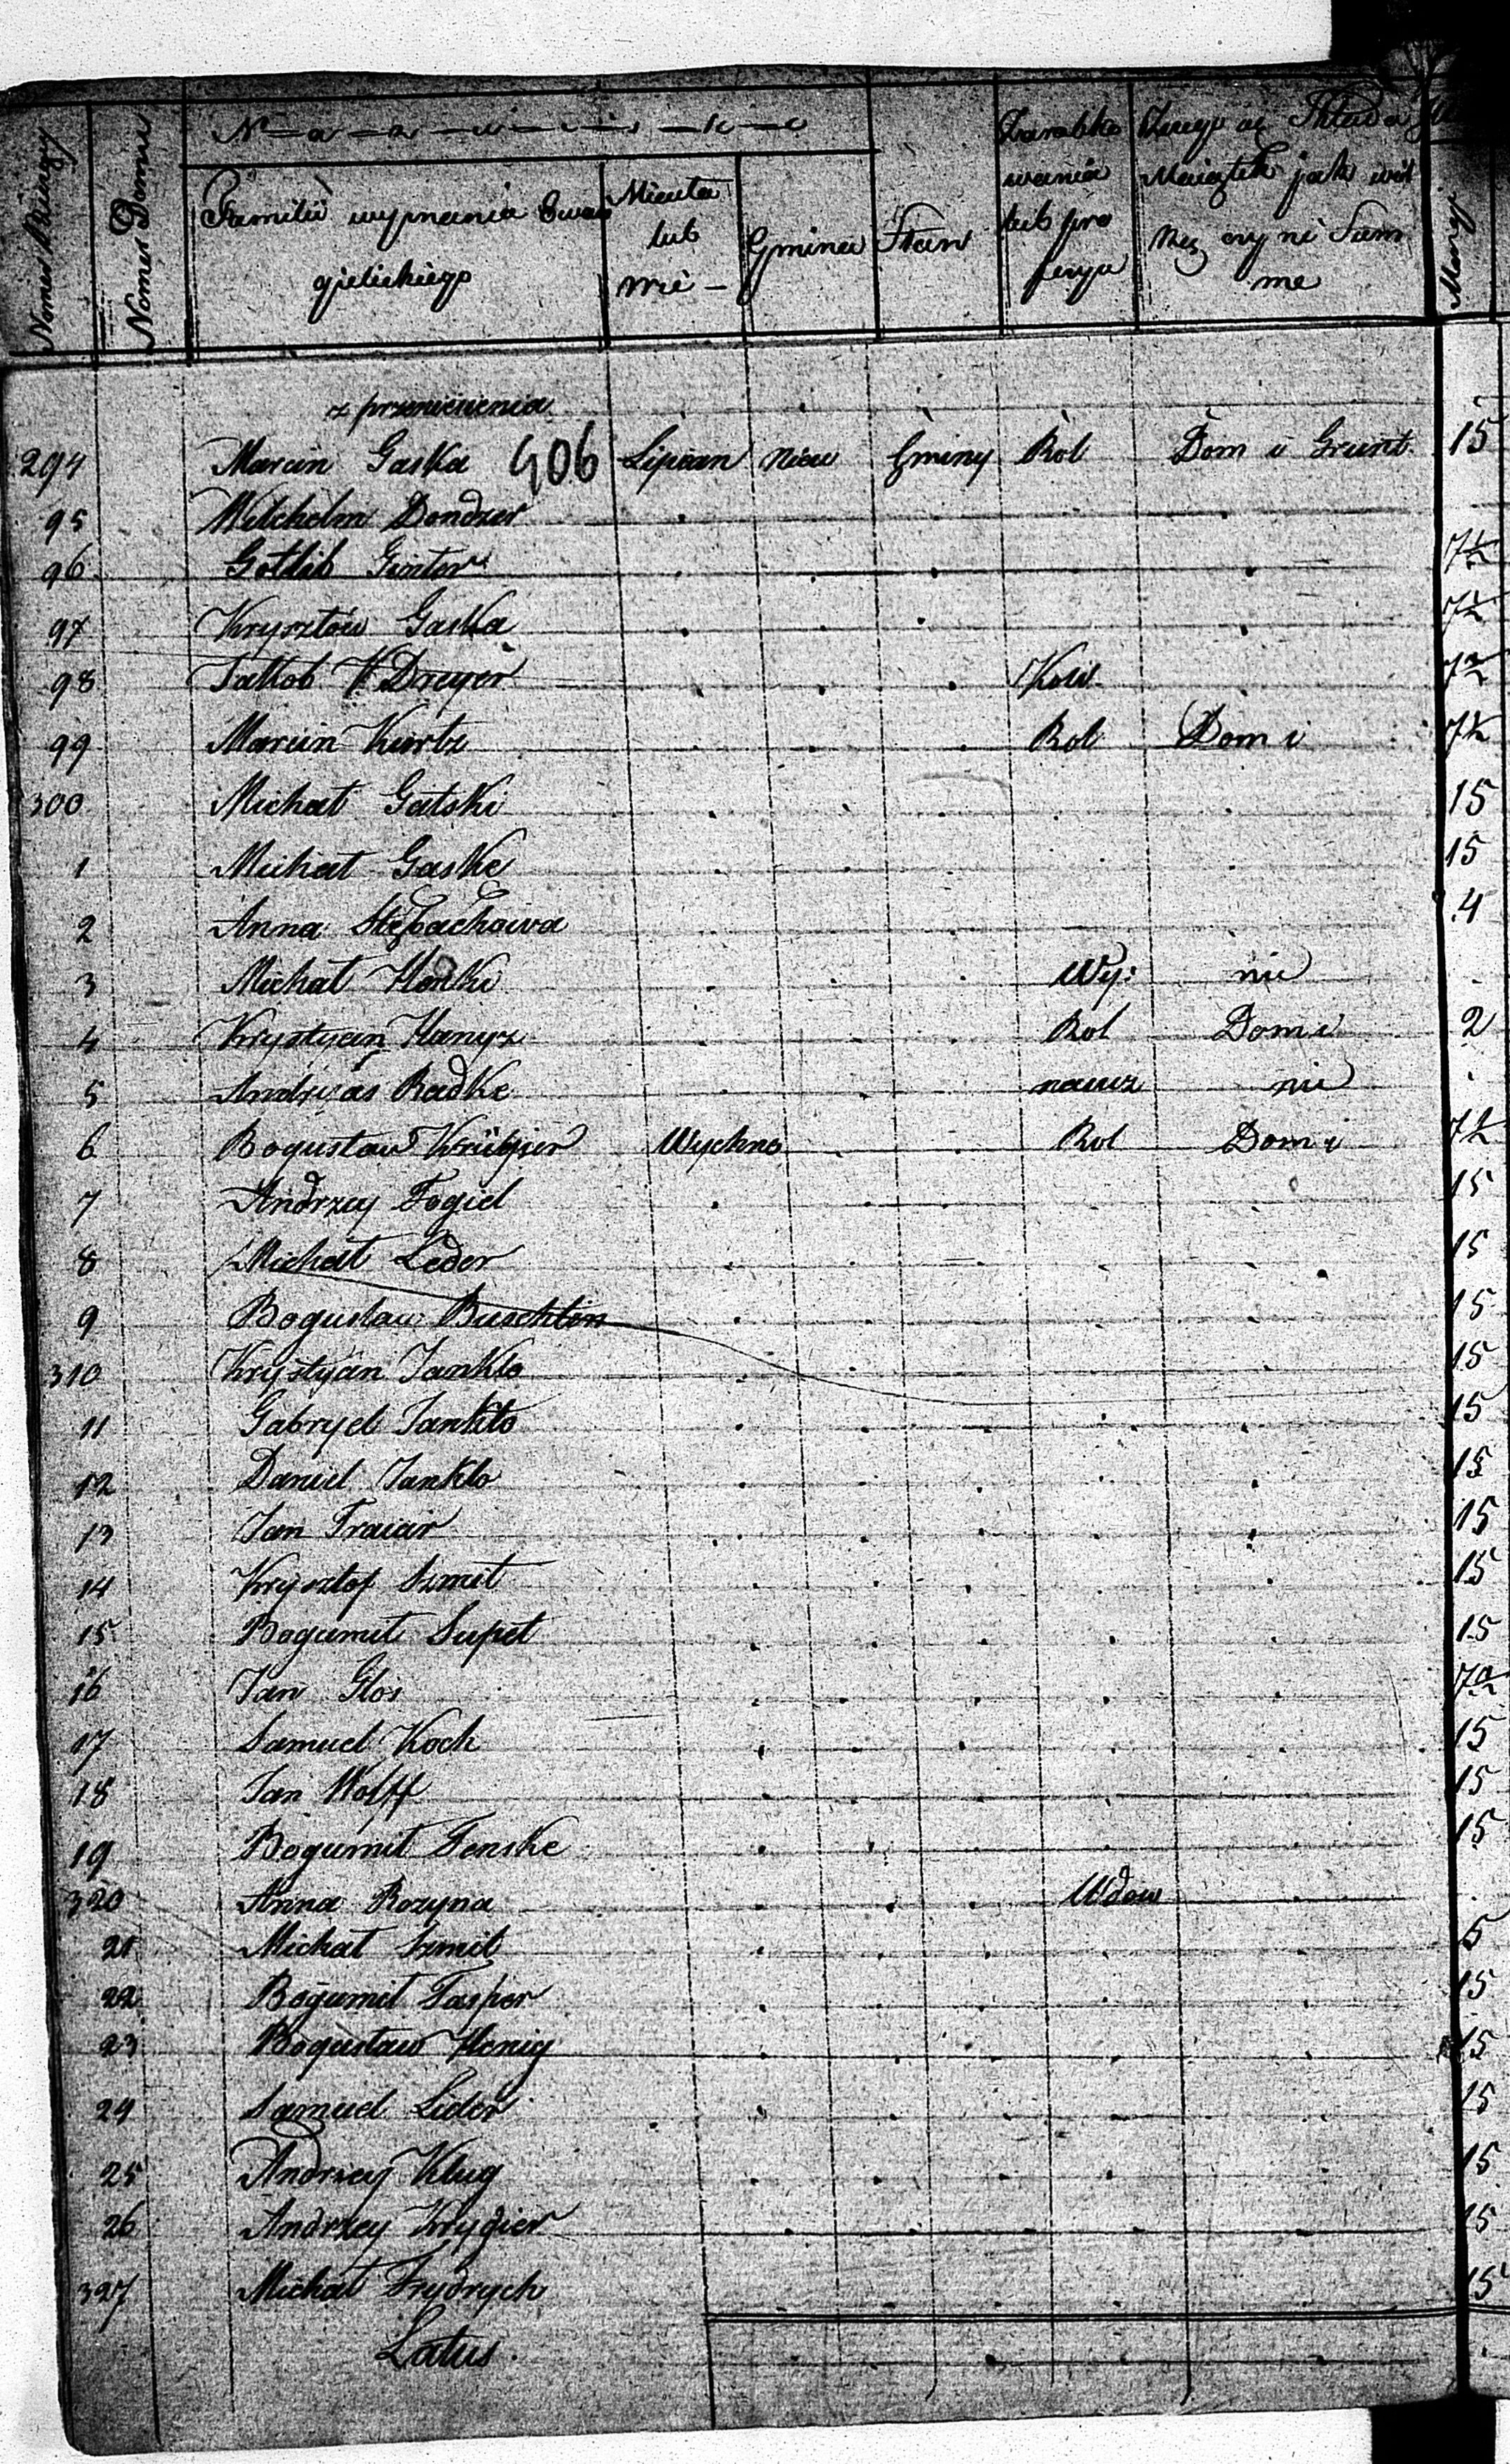 N-a-z-w-i-s-k-o
Nomer Domu
Familii wyznania Ewan
gielickiego
Miasta
lub
wsi -
Gmina
Stan
Zarobko
wania
lub pro
fesya
Maiątek jak wiel
me
z przeniesienia
294 Marcin Gaska 406 Lipian nieu Gminy Rol Dom i Grunt. 15
95 Melchelm Dondzer
96 Gotlib Ginter 7½
97 Krysztow Gaska 7½
98 Jakob Dreyer Kow. 7½
99 Marcin Kurtz Rol Dom i 7½
300 Michał Gatski 15
1 Michał Gaske 15
2 Anna 4
3 Michał Honki Wy: nie
4 Krystyan Hanyz Rol Dom i 2
5 Andryas Radke nie
6 Bogusław Krügier Wychno Rol Dom i 7½
7 Andrzey Fogiel 15
8 Michał Leder 15
9 Bogusław Buschtin 15
310 Krystyan Jankto 15
11 Gabryel Jankto 15
12 Daniel Jankto 15
13 Jan Fraiar 15
14 Krysztof Szmit 15
15 Bogumił Supet 15
16 Jan Glos 7½
17 Samuel Koch 15
18 Jan Wolff 15
19 Bogumił Fenske 15
320 Anna Rozyna Wdow
21 Michał Szmit 5
22 Bogumił Fasper 15
23 Bogusław Henig 15
24 Samuel Lider 15
25 Andrzey Klug 15
26 Andrzey Krygier 15
327 Michał Frydrych 15
Latus.